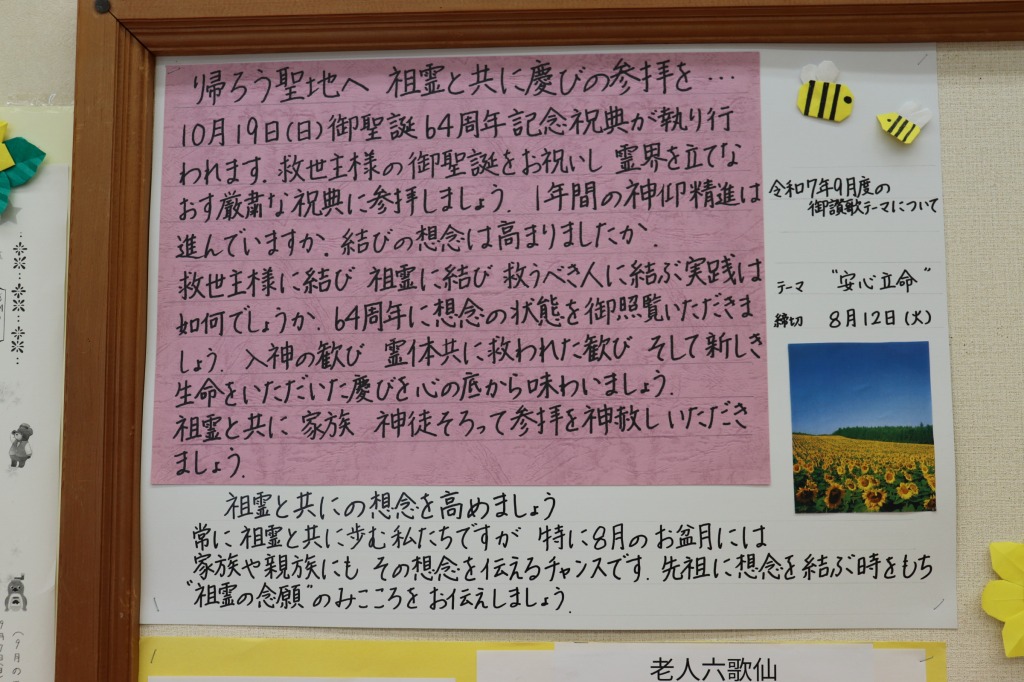 帰ろう聖地へ 祖霊と共に慶びの参拝を…
10月19日(日)御聖誕64周年記念祝典が執り行
われます.救世主様の御聖誕をお祝いし 霊界を立てな
おす厳粛な祝典に参拝しましょう. 1年間の神仰精進は
進んでいますか.結びの想念は高まりましたか.
救世主様に結び 祖霊に結び 救うべき人に結ぶ実践は
如何でしょうか.64周年に想念の状態を御照覧いただきま
しょう. 入神の歓び 霊体共に救われた歓び そして新しき
生命をいただいた慶びを心の底から味わいましょう.
祖霊と共に 家族 神徒そろって参拝を神赦しいただき
ましょう.
祖霊と共にの想念を高めましょう
常に祖霊と共に歩む私たちですが 特に8月のお盆月には
家族や親族にも その想念を伝えるチャンスです.先祖に想念を結ぶ時をもち
"祖霊の念願"のみこころを お伝えしましょう.
令和7年9月度の
御讃歌テーマについて
テーマ "安心立命"
締切 8月12日(火)
老人六歌仙